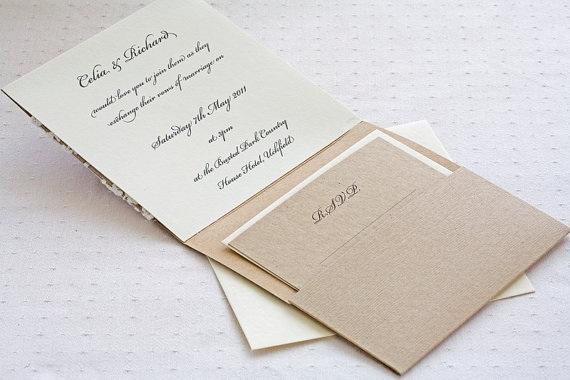 Celia & Richard
would love you to join them as they
exchange their vows of marriage on
Saturday 7th May 2011
at 2pm
at the Buxted Park Country
House Hotel, Uckfield
RSVP